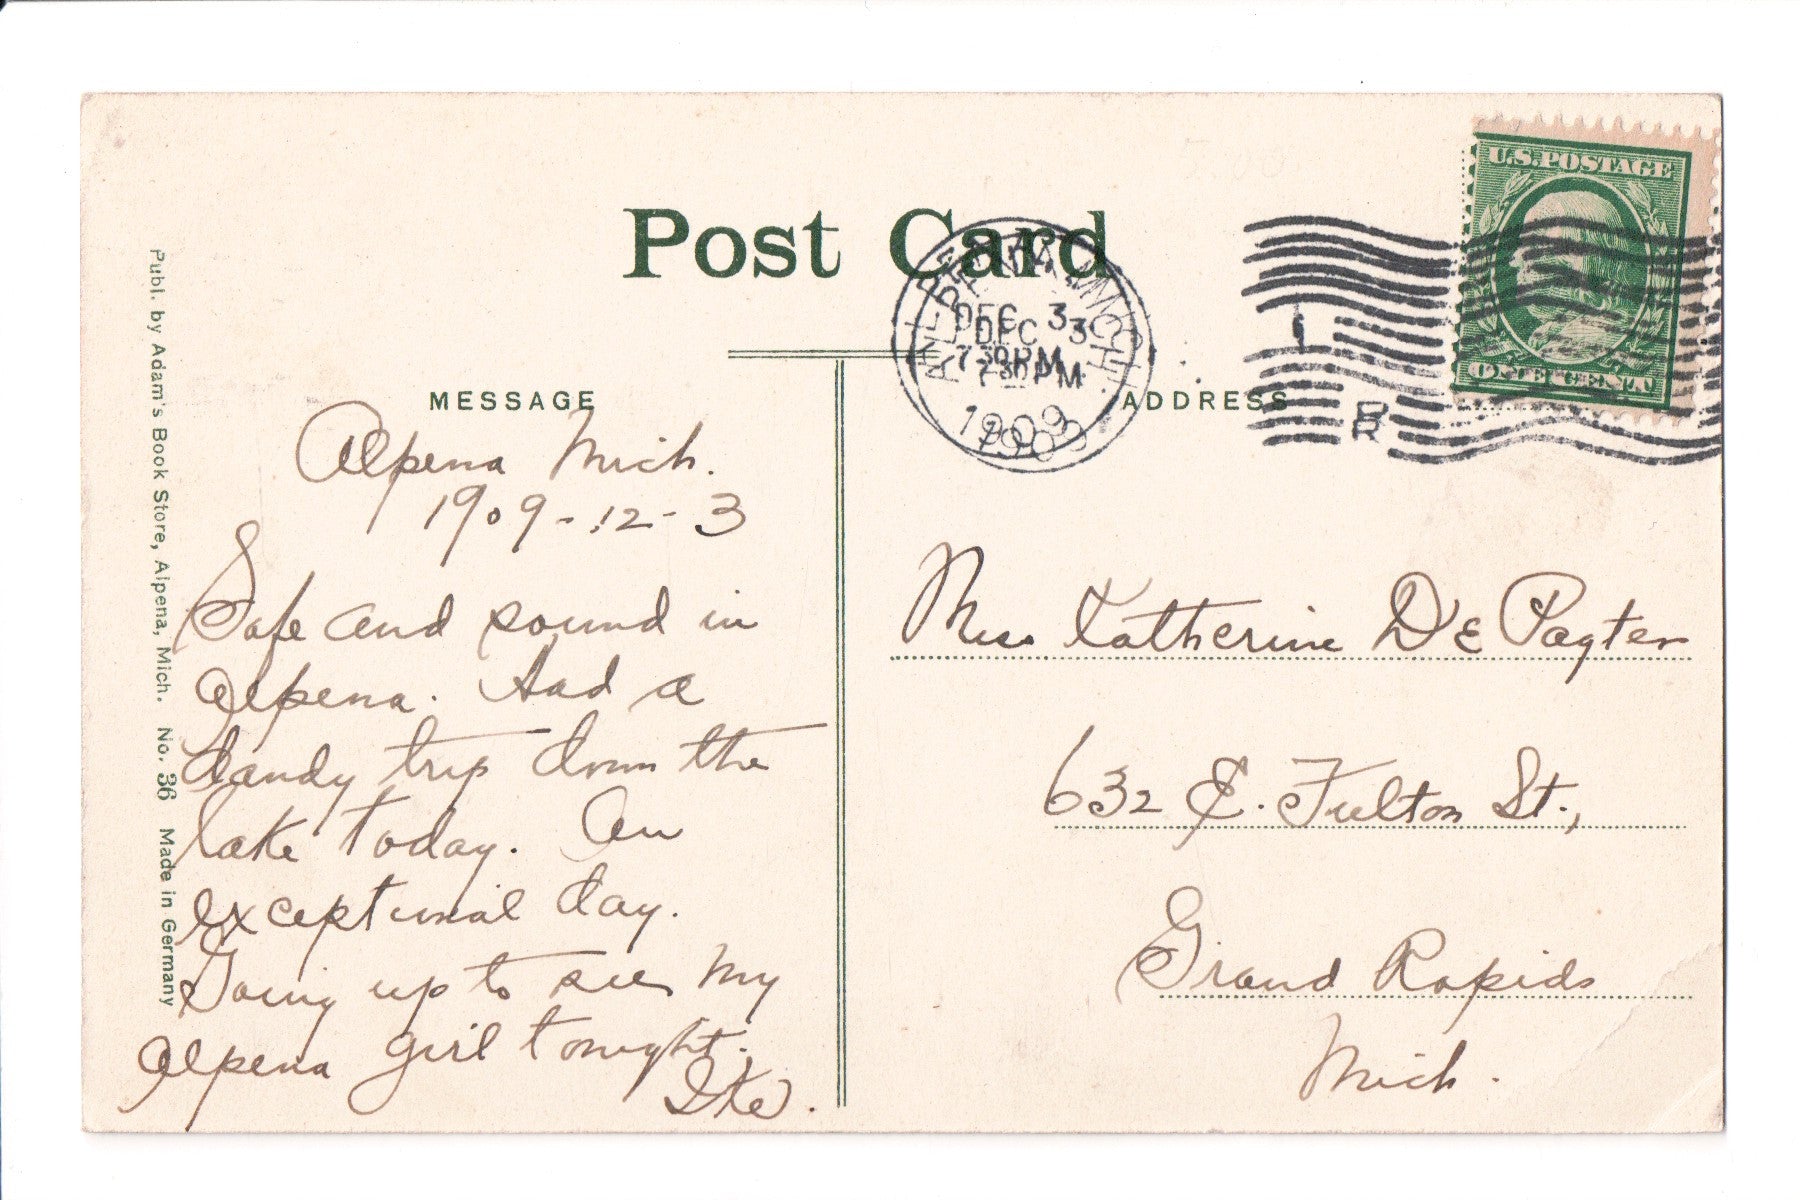 Post Card
U.S.POSTAGE
ONE CENT
ALPENA, MICH.
DEC 3
7 30 PM
1909
MESSAGE
ADDRESS
Alpena Mich.
1909-12-3
Safe and sound in
Alpena. Had a
dandy trip down the
lake today. An
exceptional day.
Going up to see my
Alpena girl tonight.
Miss Katherine De Pagter
632 E. Fulton St.,
Grand Rapids
Mich.
Publ. by Adam's Book Store, Alpena, Mich. No. 36 Made in Germany